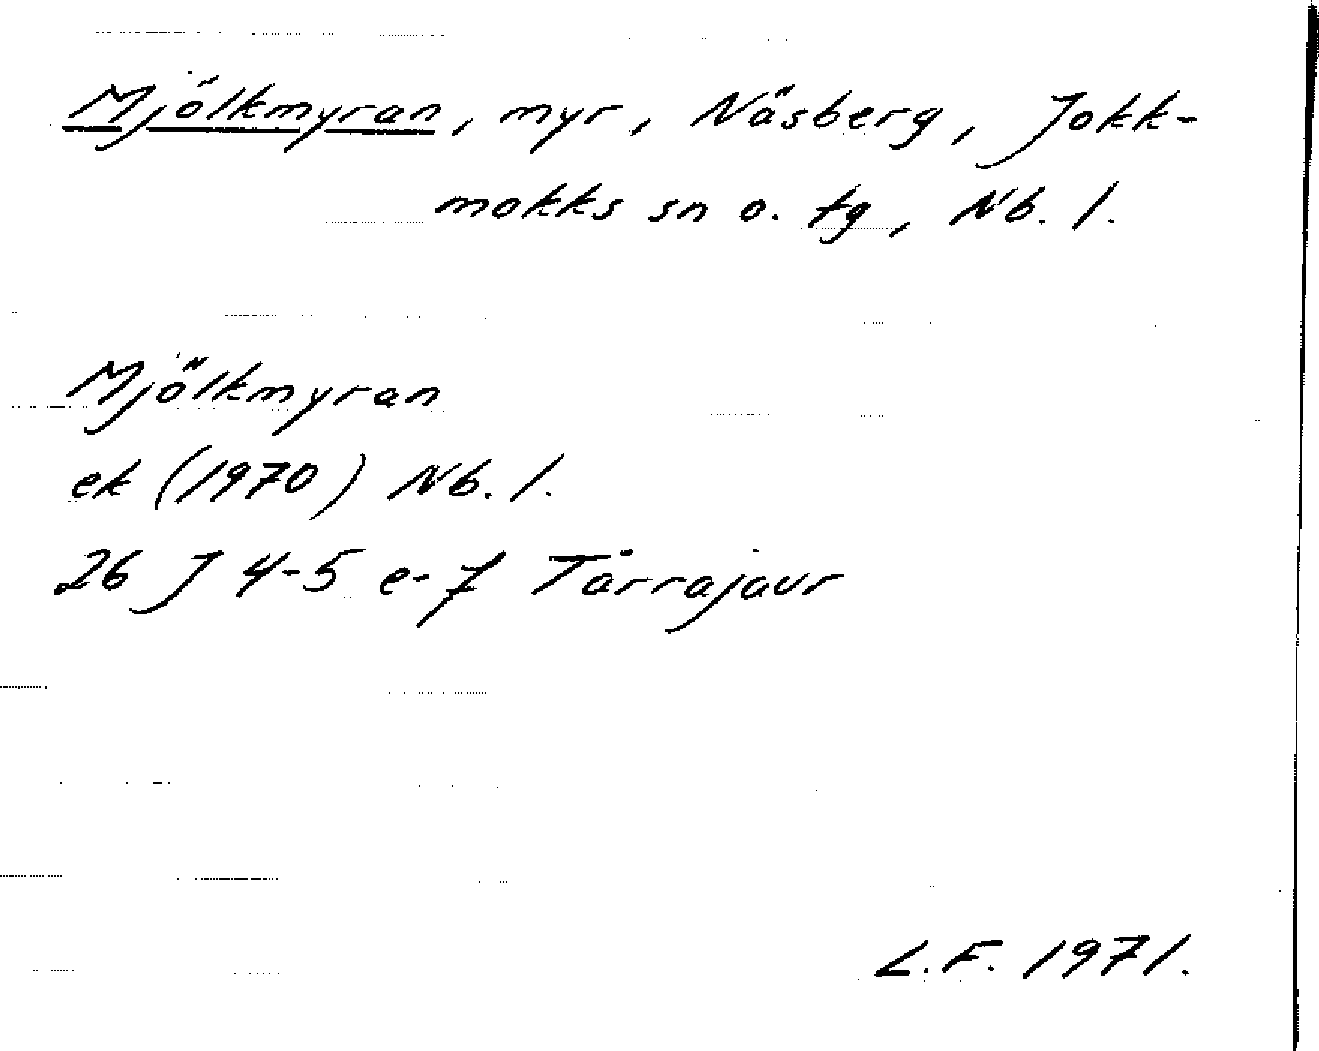 Mjölkmyran, myr, Näsberg, Jokk-
mokks sn o. tg, Nb. l.
Mjölkmyran
ek (1970) Nb. l.
26 J 4-5 e-f Tårrajaur
L.F. 1971.